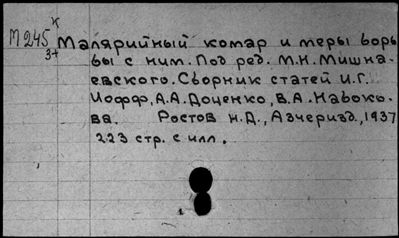 М245 к
3+
Малярийный комар и меры борь
бы с ним. Под ред. М.Н. Мишна-
евского. Сборник статей И.Г.
Иофф, А.А. Доценко, В.А. Набоко-
ва. Ростов н.Д., Азчериздд., 1937
223 стр. с илл.